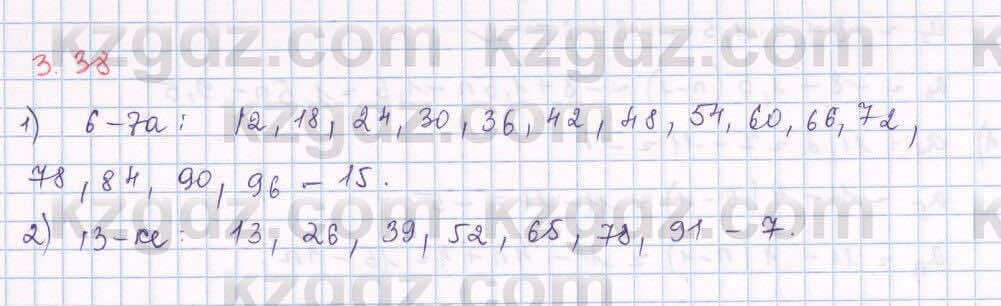 kzgdz.com kzgdz.com k
3.38
1) 6-7а: 12, 18, 24, 30, 36, 42, 48, 54, 60, 66, 72,
kzgdz.com kzgdz.com
78, 84, 90, 96 - 15.
kzgdz.com kzgdz.com k
2) 13-ке: 13, 26, 39, 52, 65, 78, 91 - 7.
kzgdz.com